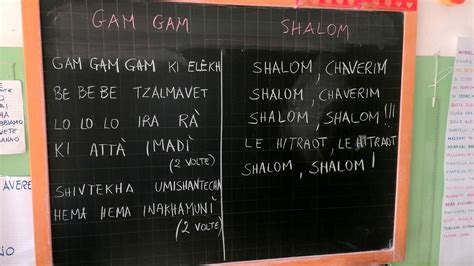 GAM GAM
GAM GAM GAM KI ELEKH
BE BE BE TZALMAVET
LO LO LO IRA RÀ
KI ATTÀ IMADÌ
(2 VOLTE)
SHIVTEKHA UMISHANTECHA
HEMA HEMA INAKHAMUNÌ
(2 VOLTE)
SHALOM
SHALOM, CHAVERIM
SHALOM, CHAVERIM
SHALOM, SHALOM!!!
LE HITRAOT, LE HITRAOT
SHALOM, SHALOM!
AVERE